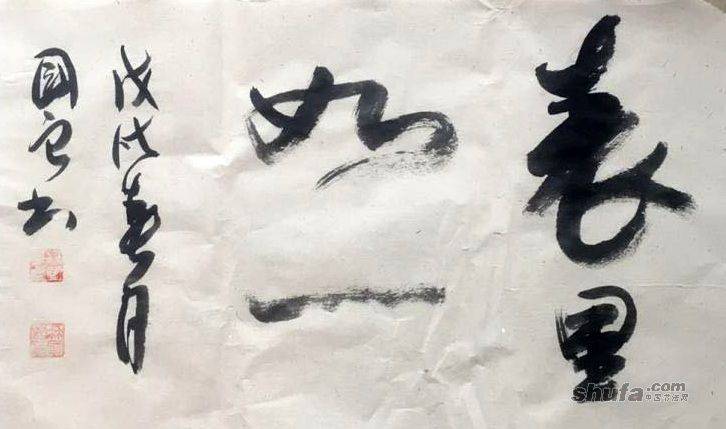 表里
如一
戊戌春月
國安书
shufa.com
中国书法网